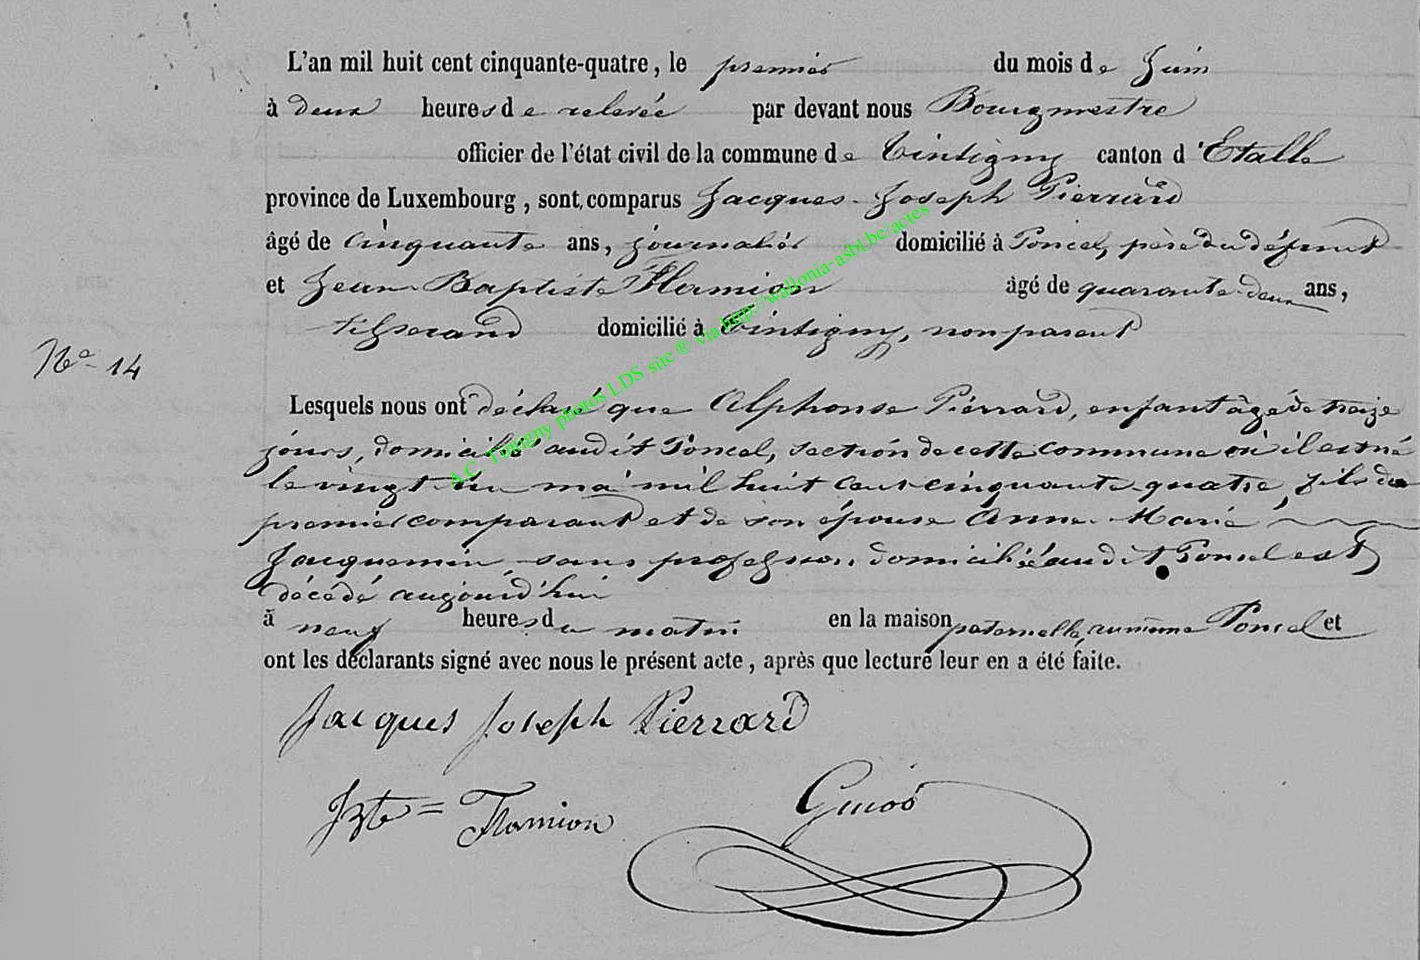 L'an mil huit cent cinquante-quatre, le premier du mois de Juin
à deux heures de relevée par devant nous Bourgmestre
officier de l'état civil de la commune de Tintigny canton d'Etalle
province de Luxembourg, sont comparus Jacques Joseph Pierrard
âgé de cinquante ans, journalier domicilié à Poncel, père du défunt
et Jean Baptiste Flamion âgé de quarante deux ans,
tisserand domicilié à Tintigny, non parent
N° 14
Lesquels nous ont déclaré que Alphonse Pierrard, enfant âgé de treize
jours, domicilié audit Poncel, section de cette commune où il est né
le vingt mai mil huit cent cinquante quatre, fils du
premier comparant et de son épouse Anne Marie
Jacquemin sans profession domiciliée audit Poncel est
décédé aujourd'hui
à neuf heures du matin en la maison paternelle, au même Poncel et
ont les déclarants signé avec nous le présent acte, après que lecture leur en a été faite.
Jacques Joseph Pierrard
JBte = Flamion
A.C. Tintigny photos LDS site ® via http://wallonia-asbl.be/actes